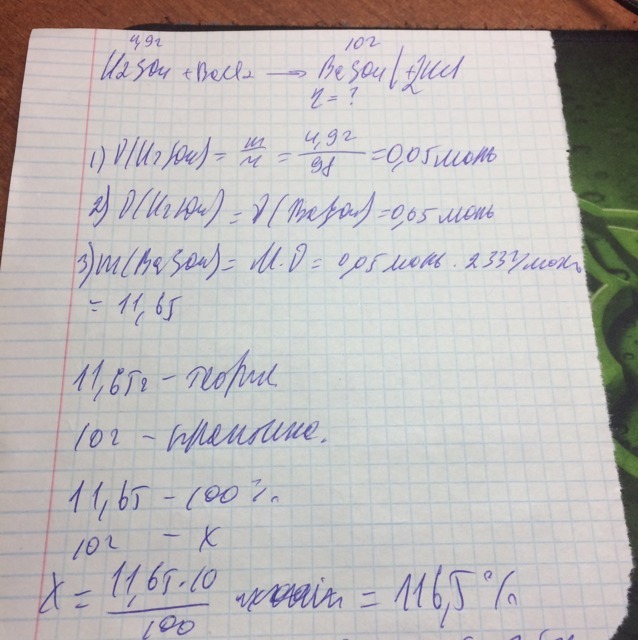 4,9г 10г
H2SO4 + BaCl2 → BaSO4↓ + 2HCl
η = ?
1) ν(H2SO4) = m/M = 4,9г/98 = 0,05 моль
2) ν(H2SO4) = ν(BaSO4) = 0,05 моль
3) m(BaSO4) = M·ν = 0,05 моль · 233г/моль
= 11,65
11,65г – теория
10г – практика.
11,65 – 100%
10г – x
x = 11,65·10/100 = 116,5%